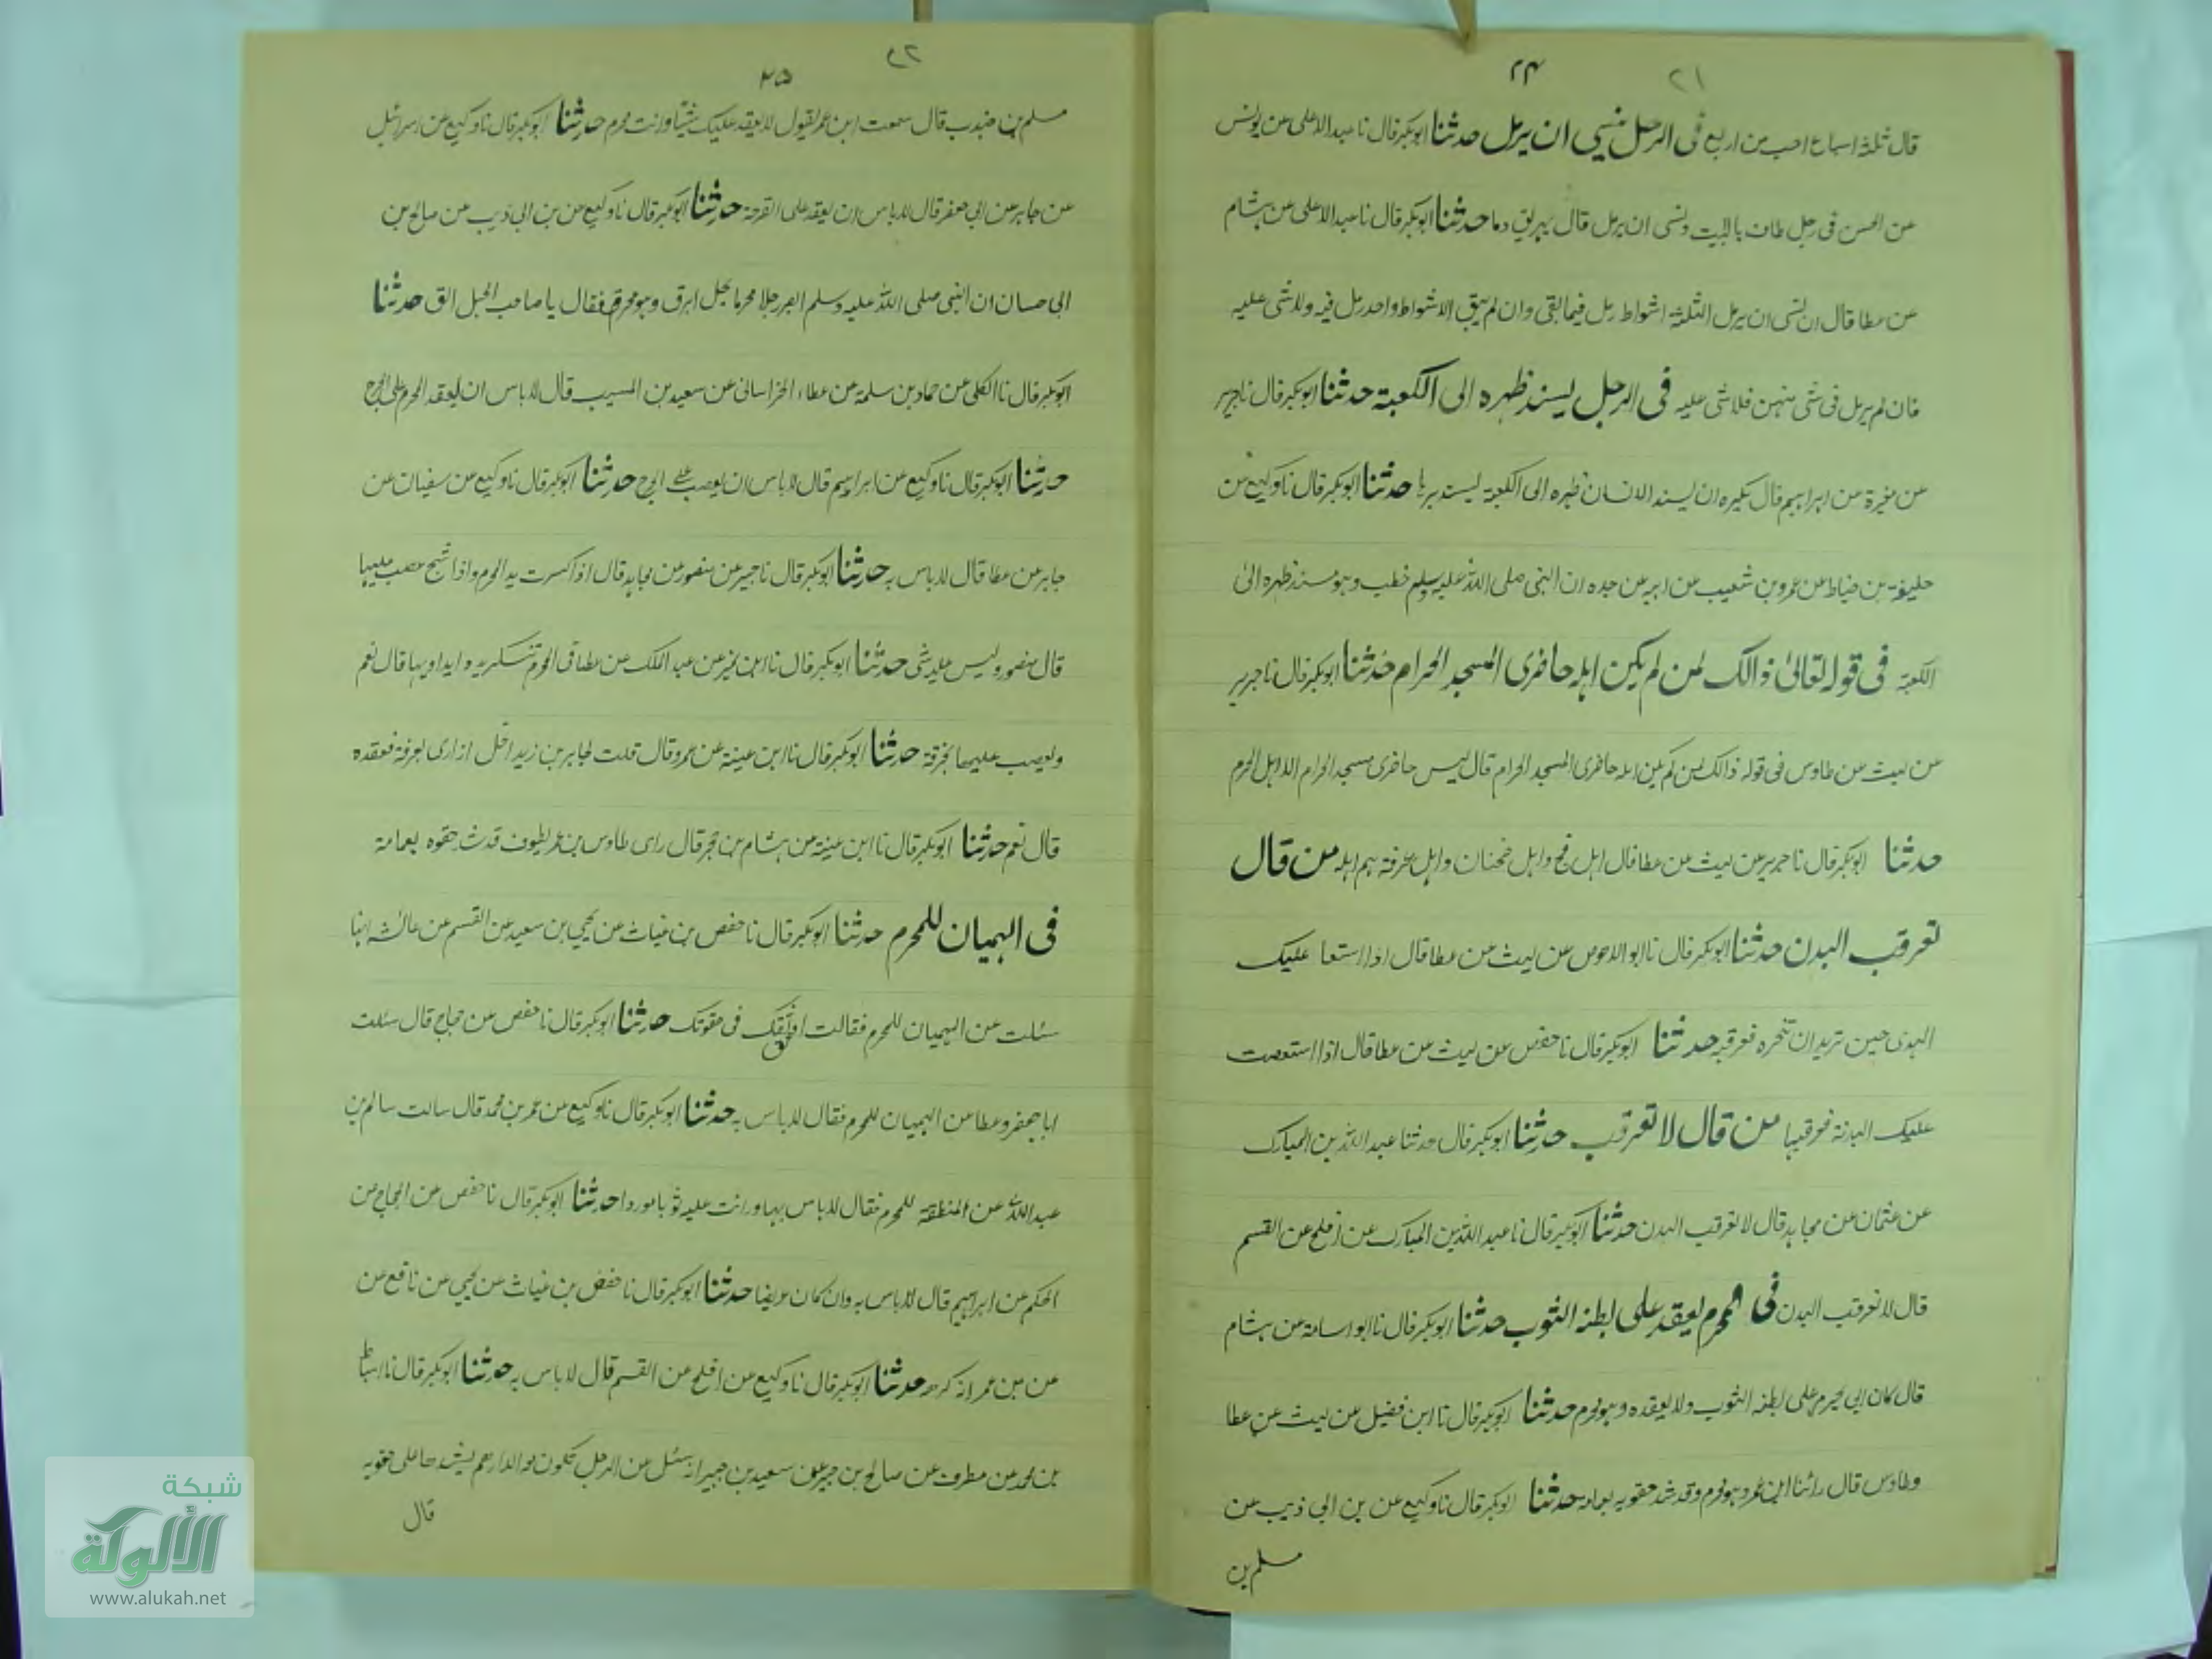 ٢١
٢٤
قال ثلثة اسباع احب من اربع في الرجل نسي ان يرمل حدثنا ابوبكر قال نا عبد الاعلى عن يونس
عن الحسن في رجل طاف بالبيت ونسى ان يرمل قال يهريق دما حدثنا ابوبكر قال نا عبد الاعلى عن هشام
عن عطا قال ان نسى ان يرمل الثلثة اشواط رمل فيما بقى وان لم يبق الا شواط واحد رمل فيه ولا شى عليه
فان لم يرمل في شى منهن فلا شى عليه في الرجل يسند ظهره الى الكعبة حدثنا ابوبكر قال نا جرير
عن مغيرة عن ابراهيم قال يكره ان يسند الانسان ظهره الى الكعبة يستدبرها حدثنا ابوبكر قال نا وكيع عن
خليفة بن خياط عن عمرو بن شعيب عن ابيه عن جده ان النبى صلى الله عليه وسلم خطب وهو مسند ظهره الى
الكعبة في قوله تعالى ذالك لمن لم يكن اهله حاضرى المسجد الحرام حدثنا ابوبكر قال نا جرير
عن ليث عن طاوس في قوله ذالك لمن لم يكن اهله حاضرى المسجد الحرام قال ليس حاضرى مسجد الحرام الا اهل الحرم
حدثنا ابوبكر قال نا جرير عن ليث عن عطا قال اهل فج واهل ضجنان واهل عرفة هم اهله من قال
تعرقب البدن حدثنا ابوبكر قال نا ابو الاحوص عن ليث عن عطا قال اذا استعا عليك
الهدى حين تريد ان تنحره فعرقبه حدثنا ابوبكر قال نا حفص عن ليث عن عطا قال اذا استعصت
عليك البدنة فعرقبها من قال لا تعرقب حدثنا ابوبكر قال حدثنا عبد الله بن المبارك
عن عثمان عن مجاهد قال لا تعرقب البدن حدثنا ابوبكر قال نا عبد الله بن المبارك عن افلح عن القسم
قال لا تعرقب البدن في المحرم يعقد على بطنه الثوب حدثنا ابوبكر قال نا ابو اسامة عن هشام
قال كان ابي يحرم على بطنه الثوب ولا يعقده وهو محرم حدثنا ابوبكر قال نا ابن فضيل عن ليث عن عطا
وطاوس قال رائنا ابن عمر وهو محرم وقد شد حقويه بعمامه حدثنا ابوبكر قال نا وكيع عن بن ابي ذيب عن
مسلم بن
٢٢
٢٥
مسلم بن جندب قال سمعت ابن عمر يقول لا يعقد عليك شيئا وانت محرم حدثنا ابوبكر قال نا وكيع عن اسرائيل
عن جابر عن ابي جعفر قال لا باس ان يعقد على القرحة حدثنا ابوبكر قال نا وكيع عن بن ابي ذيب عن صالح بن
ابي حسان ان النبى صلى الله عليه وسلم ابصر رجلا محرما بحبل ابرق وهو محرم فقال يا صاحب الحبل الق حدثنا
ابوبكر قال نا الكلى عن حماد بن سلمة عن عطاء الخراسانى عن سعيد بن المسيب قال لا باس ان يعقد المحرم على الجرح
حدثنا ابوبكر قال نا وكيع عن ابراهيم قال لا باس ان يعصب على الجرح حدثنا ابوبكر قال نا وكيع عن سفيان عن
جابر عن عطا قال لا باس به حدثنا ابوبكر قال نا جرير عن منصور عن مجاهد قال اذا كسرت يد المحرم واذا شج عصب عليها
قال منصور وليس عليه شى حدثنا ابوبكر قال نا ابن نمير عن عبد الملك عن عطا في المحرم تنكسر يده ايداويها قال نعم
ويعصب عليها بخرقة حدثنا ابوبكر قال نا ابن عيينة عن عمرو قال قلت لجابر بن زيد انحل ازارى بعرفة فعقده
قال نعم حدثنا ابوبكر قال نا ابن عينة عن هشام بن حجر قال راى طاوس بن عمر يطوف قد شد حقوه بعمامة
في الهميان للمحرم حدثنا ابوبكر قال نا حفص بن غياث عن يحيى بن سعيد عن القسم عن عائشة انها
سئلت عن الهميان للمحرم فقالت اوثق نفقتك في حقوتك حدثنا ابوبكر قال نا حفص عن حجاج قال سئلت
ابا جعفر وعطا عن الهميان للمحرم فقال لا باس به حدثنا ابوبكر قال نا وكيع عن عمر بن محمد قال سالت سالم بن
عبد الله عن المنطقة للمحرم فقال لا باس بها وانت عليه ثوبا موردا حدثنا ابوبكر قال نا حفص عن الحجاج عن
الحكم عن ابراهيم قال لا باس به وان كان عريضا حدثنا ابوبكر قال نا حفص بن غياث عن يحيى عن نافع عن
عن بن عمر انه كرهه حدثنا ابوبكر قال نا وكيع عن افلح عن القسم قال لا باس به حدثنا ابوبكر قال نا اسباط
بن محمد عن مطرف عن صالح بن جبير عن سعيد بن جبير انه سئل عن الرجل تكون معه الدارهم يشدها على حقويه
قال
شبكة
الألوكة
www.alukah.net